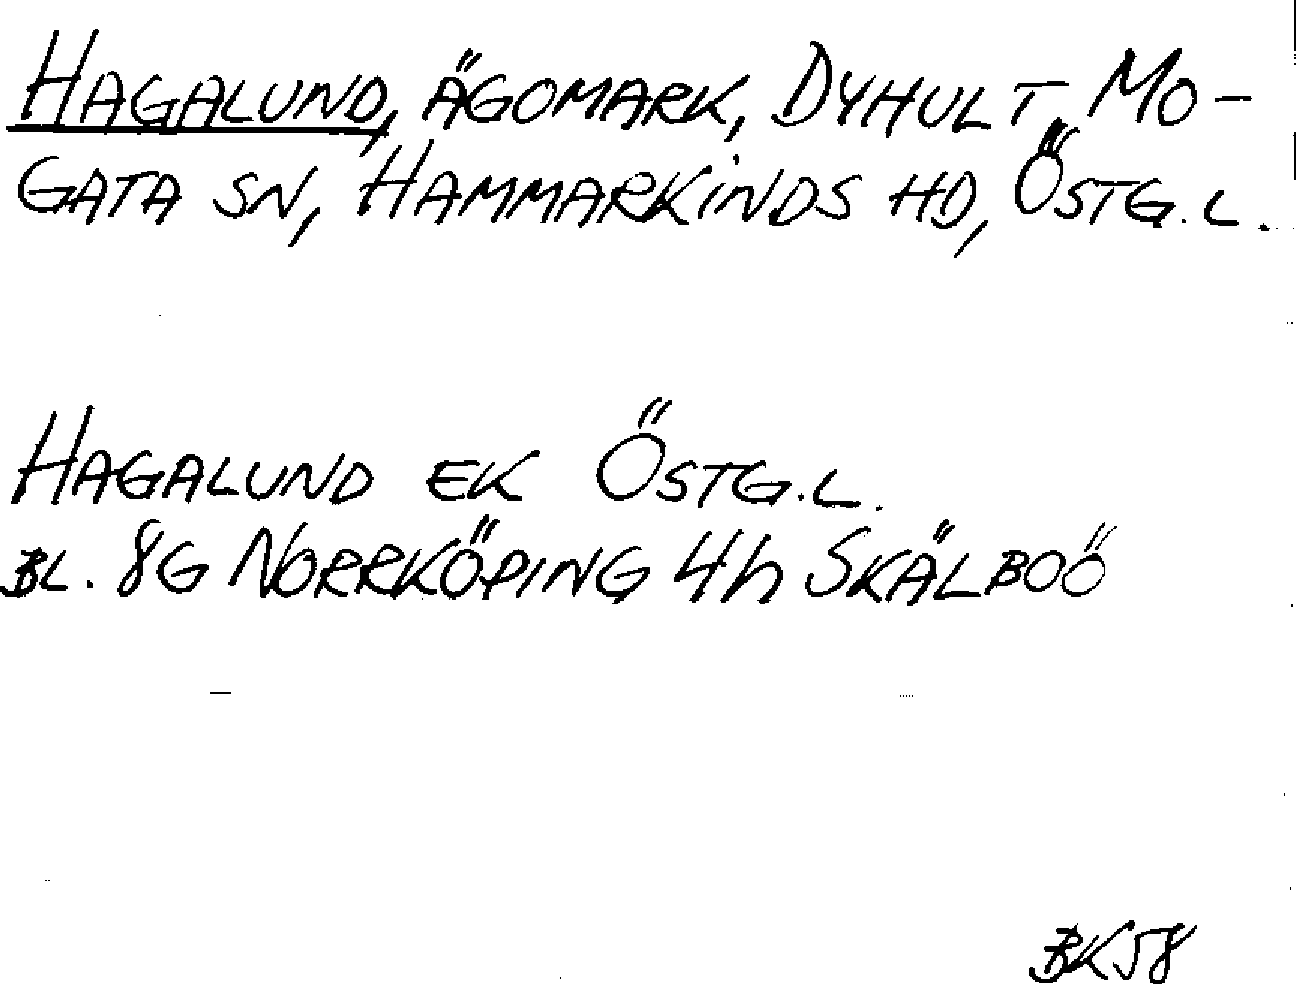 HAGALUND, ÄGOMARK, DYHULT, MO-
GATA SN, HAMMARKINDS HD, ÖSTG.L.
HAGALUND EK ÖSTG.L.
BL. 8G NORRKÖPING 4h SKÄLBOÖ
BK58